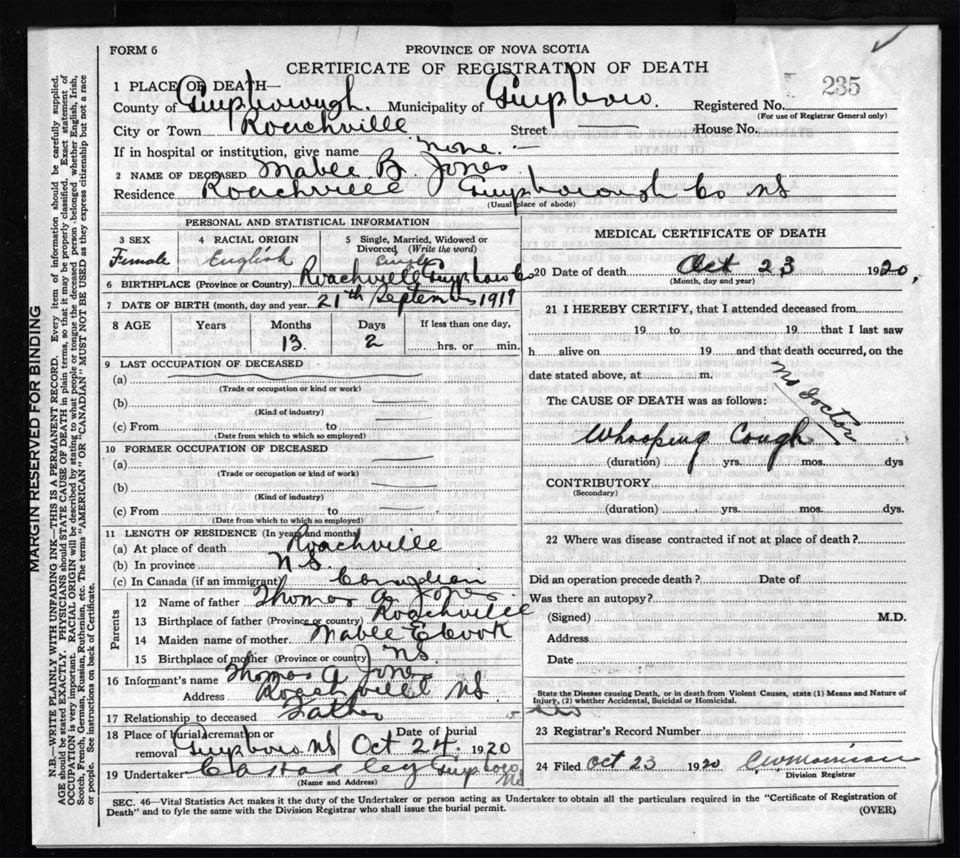 FORM 6
PROVINCE OF NOVA SCOTIA
CERTIFICATE OF REGISTRATION OF DEATH
235
1 PLACE OF DEATH—
County of Guysborough. Municipality of Guysboro. Registered No.
(For use of Registrar General only)
City or Town Roachville Street House No.
If in hospital or institution, give name none.
2 NAME OF DECEASED Mablee B. Jones
Residence Roachville Guysborough Co NS
(Usual place of abode)
PERSONAL AND STATISTICAL INFORMATION
3 SEX 4 RACIAL ORIGIN 5 Single, Married, Widowed or Divorced (Write the word)
Female English Single
6 BIRTHPLACE (Province or Country) Roachville Guysboro Co
7 DATE OF BIRTH (month, day and year) 21th September 1919
8 AGE Years Months Days If less than one day,
13 2 hrs. or min.
9 LAST OCCUPATION OF DECEASED
(a)
(Trade or occupation or kind or work)
(b)
(Kind of industry)
(c) From to
(Date from which to which so employed)
10 FORMER OCCUPATION OF DECEASED
(a)
(Trade or occupation or kind of work)
(b)
(Kind of industry)
(c) From to
(Date from which to which so employed)
11 LENGTH OF RESIDENCE (In years and months)
(a) At place of death Roachville
(b) In province N.S.
(c) In Canada (if an immigrant) Canadian
Parents
12 Name of father Thomas A Jones
13 Birthplace of father (Province or country) Roachville
14 Maiden name of mother Mablee E Cook
15 Birthplace of mother (Province or country) NS
16 Informant's name Thomas A Jones
Address Roachville NS
17 Relationship to deceased Father
18 Place of burial, cremation or removal Guysboro NS Date of burial Oct 24. 1920
19 Undertaker Guysboro NS
(Name and Address)
MEDICAL CERTIFICATE OF DEATH
20 Date of death Oct 23 1920,
(Month, day and year)
21 I HEREBY CERTIFY, that I attended deceased from
19 to 19 that I last saw
h alive on 19 and that death occurred, on the
date stated above, at m.
The CAUSE OF DEATH was as follows:
No Doctor
Whooping Cough
(duration) yrs. mos. dys
CONTRIBUTORY
(Secondary)
(duration) yrs. mos. dys.
22 Where was disease contracted if not at place of death?
Did an operation precede death? Date of
Was there an autopsy?
(Signed) M.D.
Address
Date
State the Disease causing Death, or in death from Violent Causes, state (1) Means and Nature of
Injury, (2) whether Accidental, Suicidal or Homicidal.
23 Registrar's Record Number
24 Filed Oct 23 1920
Division Registrar
SEC. 46—Vital Statistics Act makes it the duty of the Undertaker or person acting as Undertaker to obtain all the particulars required in the "Certificate of Registration of
Death" and to fyle the same with the Division Registrar who shall issue the burial permit.
(OVER)
MARGIN RESERVED FOR BINDING
N.B.—WRITE PLAINLY WITH UNFADING INK—THIS IS A PERMANENT RECORD. Every item of information should be carefully supplied.
AGE should be stated EXACTLY. PHYSICIANS should STATE CAUSE OF DEATH in plain terms, so that it may be properly classified. Exact statement of
OCCUPATION is very important. RACIAL ORIGIN will be described by stating to what people or tongue the deceased person belonged whether English, Irish,
Scotch, French, German, Russian, Ruthenian, etc. The terms "AMERICAN" OR "CANADIAN" MUST NOT BE USED as they express citizenship but not a race
or people. See instructions on back of Certificate.